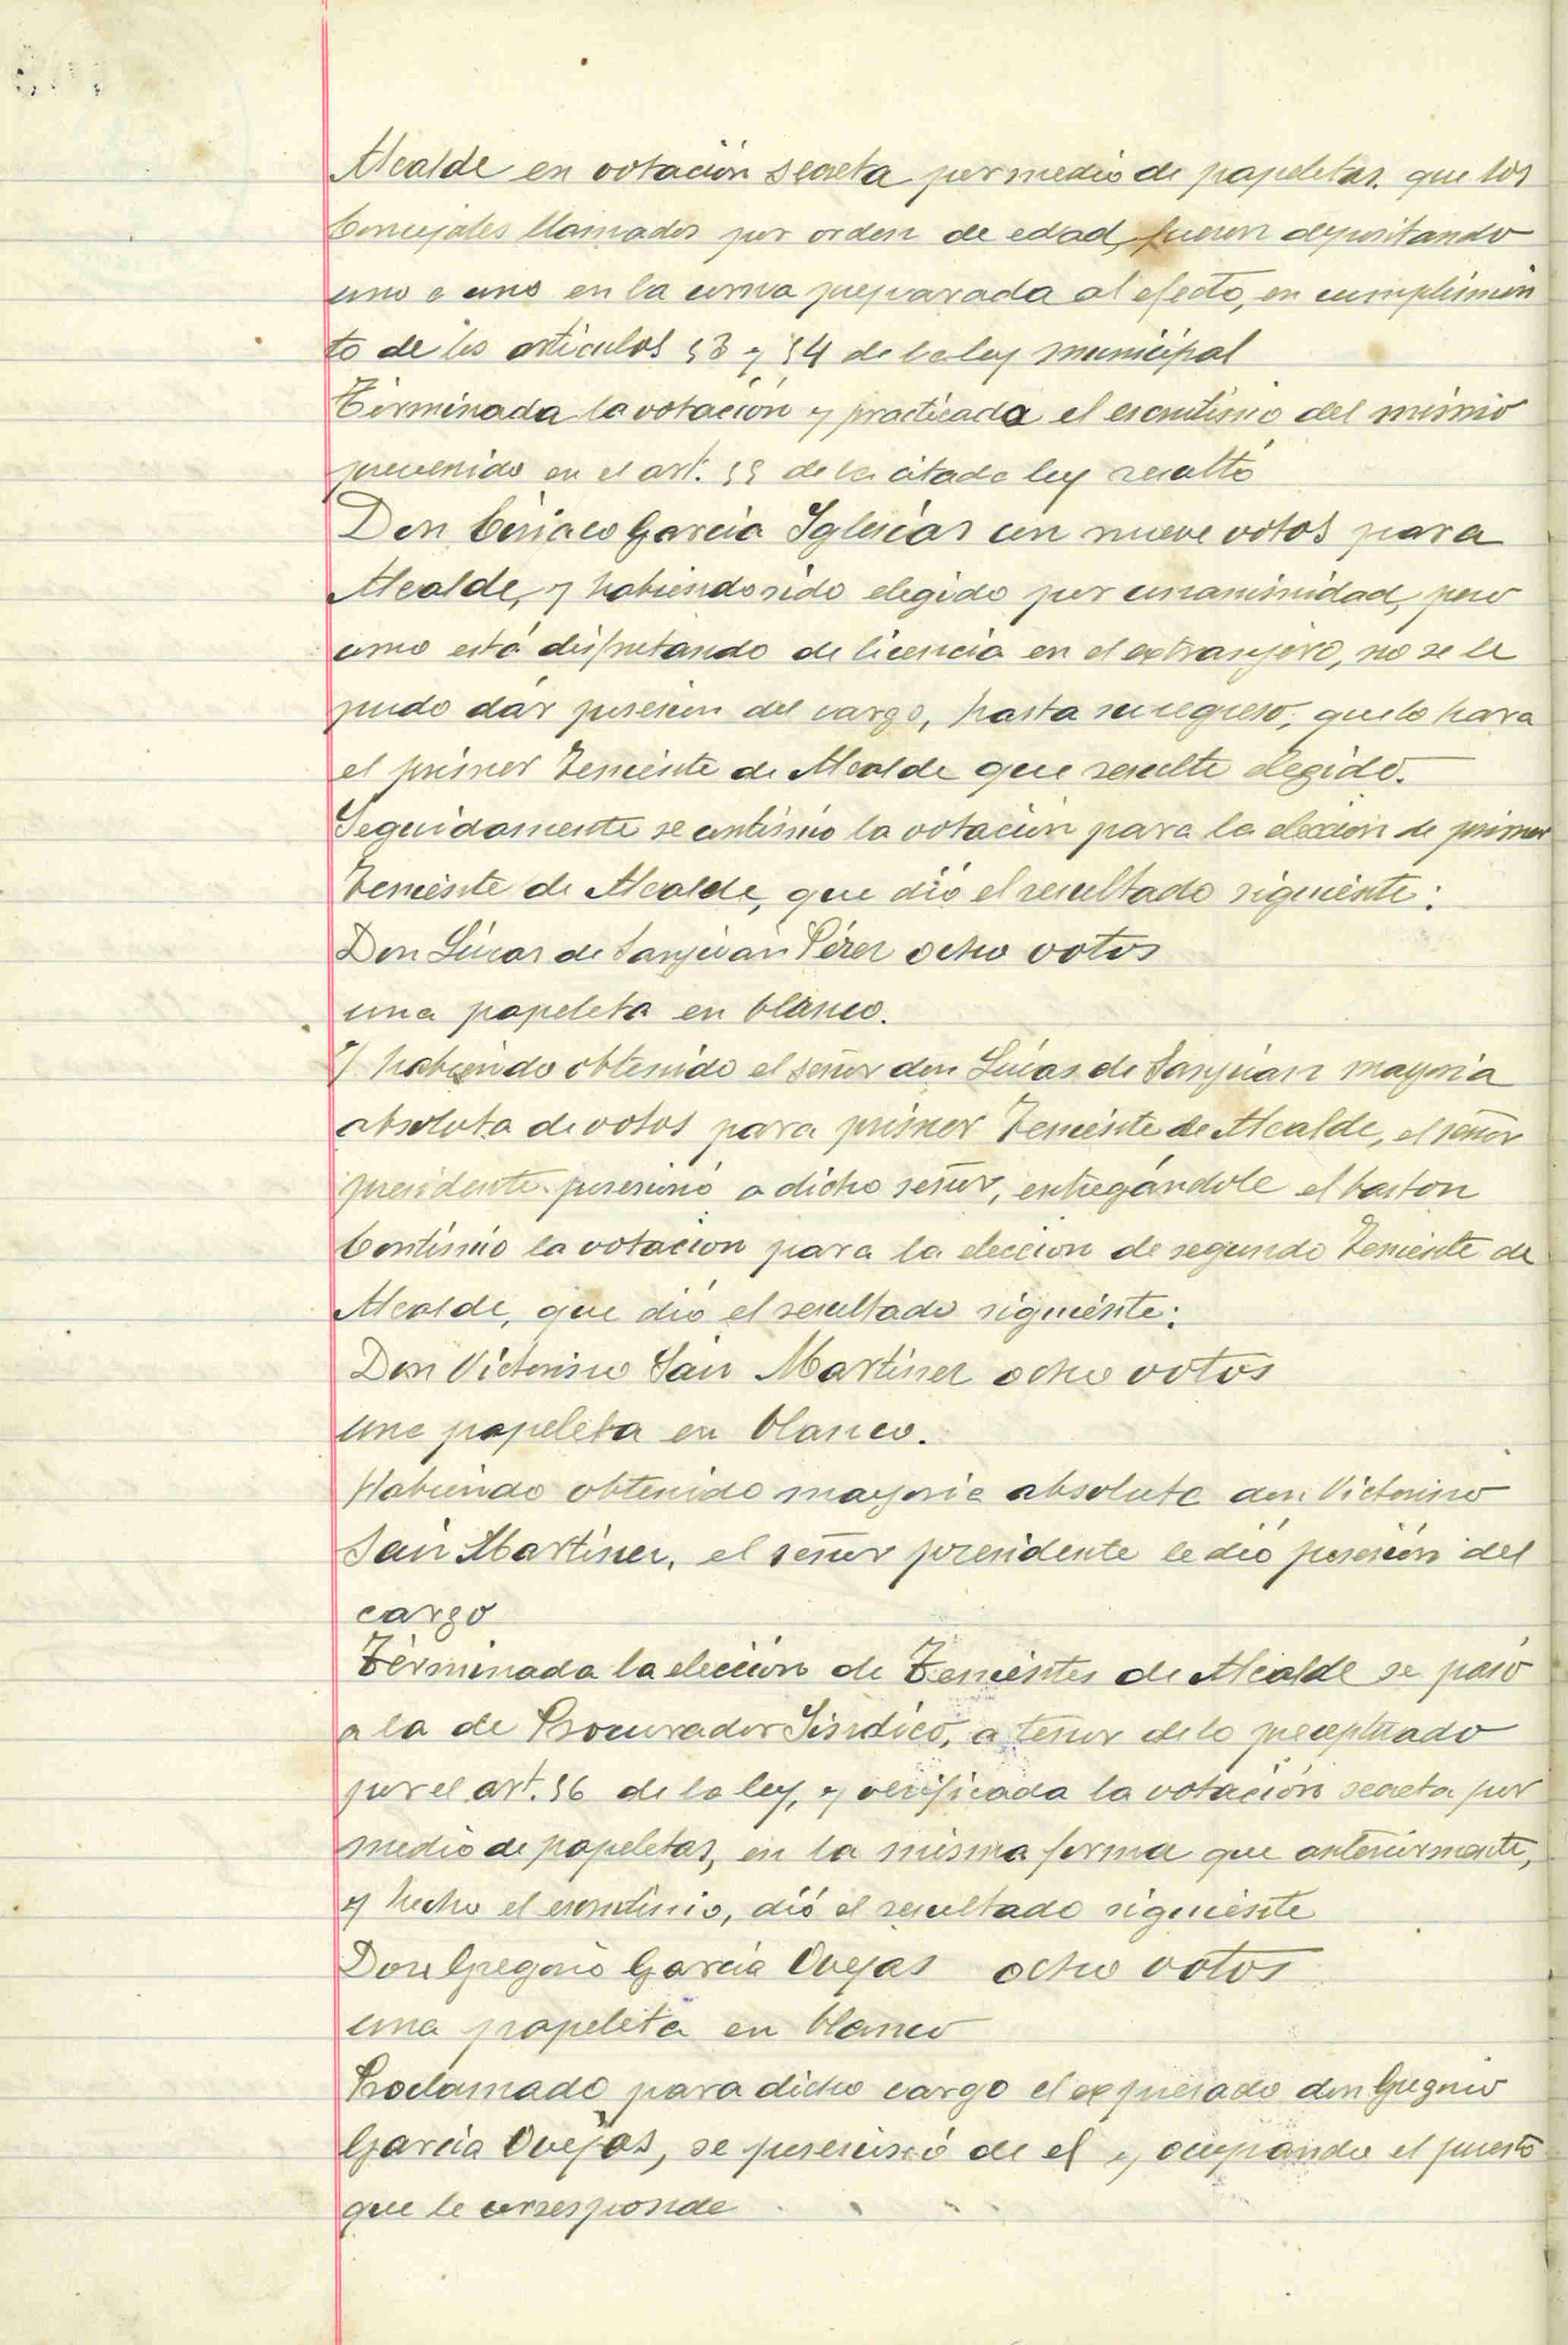 Alcalde en votación secreta por medio de papeletas, que los
Concejales llamados por orden de edad, fueron depositando
uno a uno en la urna preparada al efecto, en cumplimien
to de los artículos 53 y 54 de la ley municipal
Terminada la votación y practicada el escrutinio del mismo
prevenido en el art. 55 de la citada ley resultó
Don Ciriaco García Iglesias con nueve votos para
Alcalde, y habiendo sido elegido por unanimidad, pero
como está disfrutando de licencia en el extranjero, no se le
pudo dár posesion del cargo, hasta su regreso, que lo hara
el primer Teniente de Alcalde que resulte elegido.
Seguidamente se continuo la votación para la elección de primer
Teniente de Alcalde, que dió el resultado siguiente:
Don Lucas de Sanjuan Pérez ocho votos
una papeleta en blanco.
Y habiendo obtenido el señor don Lucas de Sanjuan mayoria
absoluta de votos para primer Teniente de Alcalde, el señor
presidente posesionó a dicho señor, entregándole el baston
Continuo la votacion para la eleccion de segundo Teniente de
Alcalde, que dió el resultado siguiente:
Don Victorino San Martinez ocho votos
una papeleta en blanco.
Habiendo obtenido mayoria absoluta don Victorino
San Martinez, el señor presidente le dió posesión del
cargo
Terminada la elección de Tenientes de Alcalde se pasó
a la de Procurador Sindico, a tenor de lo preceptuado
por el art. 56 de la ley, y verificada la votación secreta por
medio de papeletas, en la misma forma que anteriormente,
y hecho el escrutinio, dió el resultado siguiente
Don Gregorio García Ovejas ocho votos
una papeleta en blanco
Proclamado para dicho cargo el expresado don Gregorio
García Ovejas, se posesionó de el y ocupando el puesto
que le corresponde